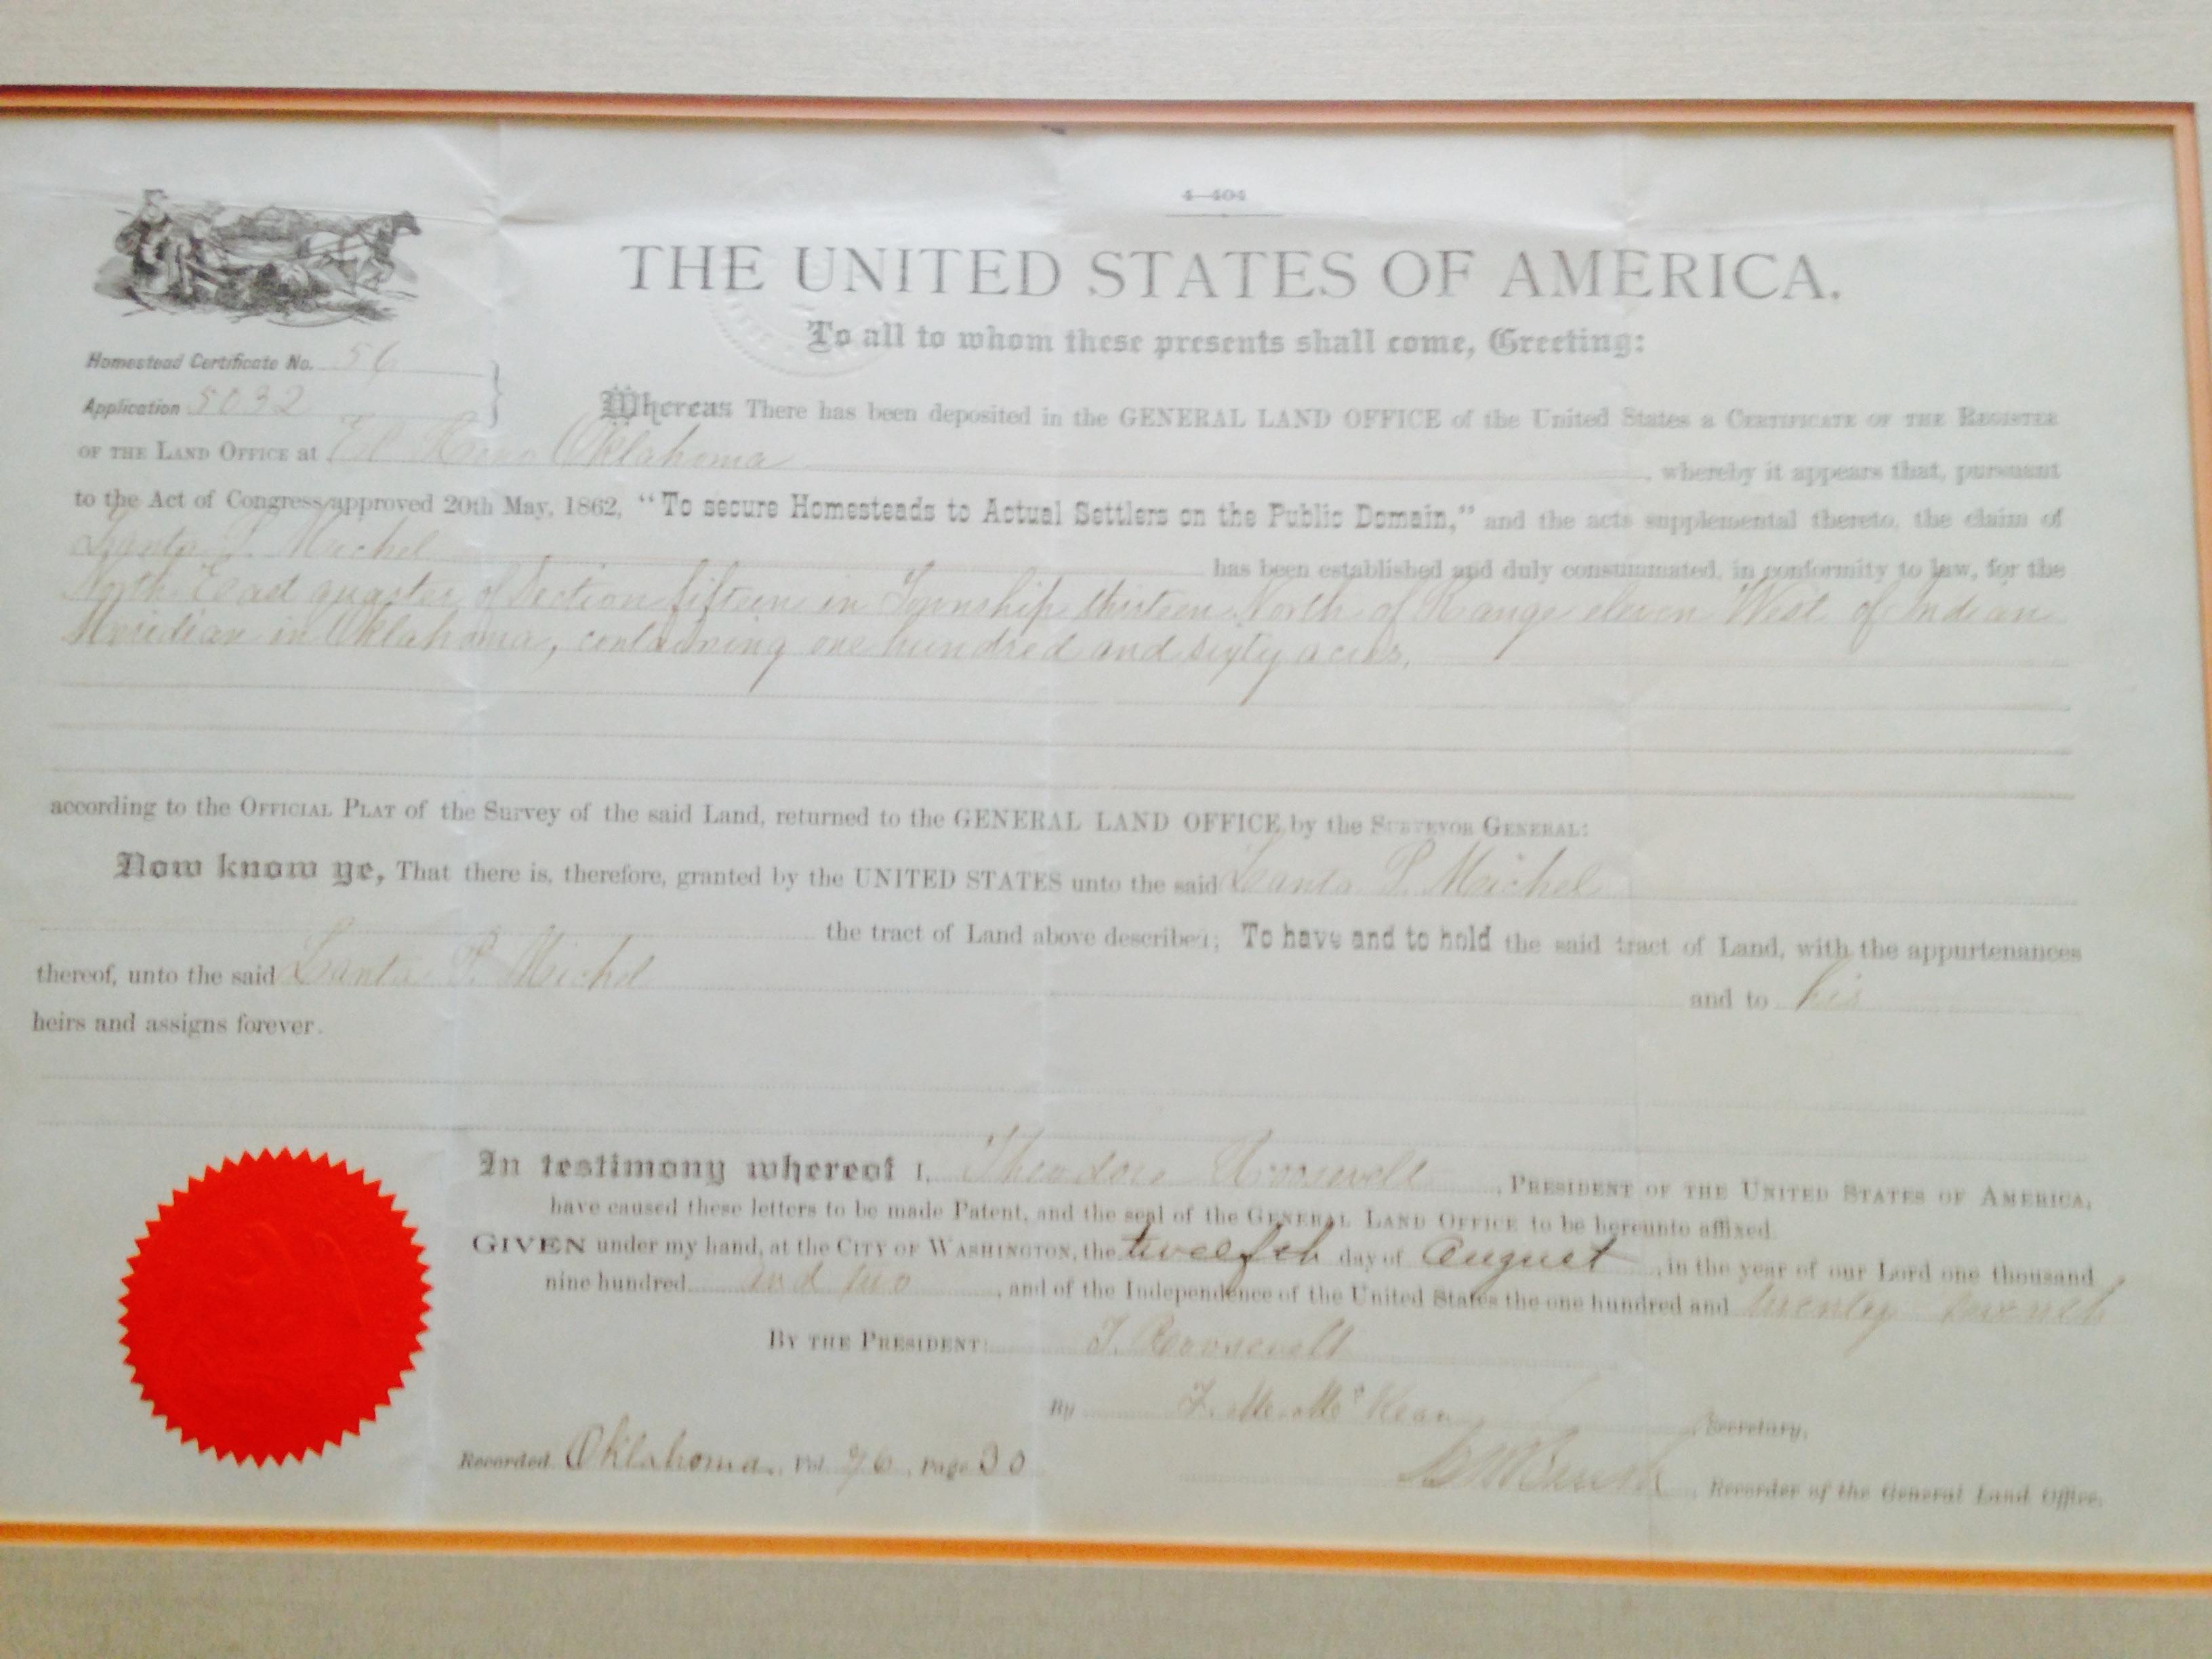 4—404
THE UNITED STATES OF AMERICA.
To all to whom these presents shall come, Greeting:
Homestead Certificate No. 56
Application 5032
Whereas There has been deposited in the GENERAL LAND OFFICE of the United States a CERTIFICATE OF THE REGISTER
OF THE LAND OFFICE at El Reno Oklahoma, whereby it appears that, pursuant
to the Act of Congress approved 20th May, 1862, “To secure Homesteads to Actual Settlers on the Public Domain,” and the acts supplemental thereto, the claim of
P. Michel has been established and duly consummated, in conformity to law, for the
North East quarter of Section fifteen in Township thirteen North of Range eleven West of Indian
Meridian in Oklahoma, containing one hundred and sixty acres.
according to the OFFICIAL PLAT of the Survey of the said Land, returned to the GENERAL LAND OFFICE by the SURVEYOR GENERAL:
Now know ye, That there is, therefore, granted by the UNITED STATES unto the said P. Michel
the tract of Land above described; To have and to hold the said tract of Land, with the appurtenances
thereof, unto the said P. Michel and to his
heirs and assigns forever.
In testimony whereof I, Theodore Roosevelt, PRESIDENT OF THE UNITED STATES OF AMERICA,
have caused these letters to be made Patent, and the seal of the GENERAL LAND OFFICE to be hereunto affixed.
GIVEN under my hand, at the CITY OF WASHINGTON, the twelfth day of August, in the year of our Lord one thousand
nine hundred and two, and of the Independence of the United States the one hundred and twenty seventh
BY THE PRESIDENT: T. Roosevelt
By F. M. McKean Secretary,
Recorded Oklahoma, Vol. 96, Page 30
Recorder of the General Land Office.